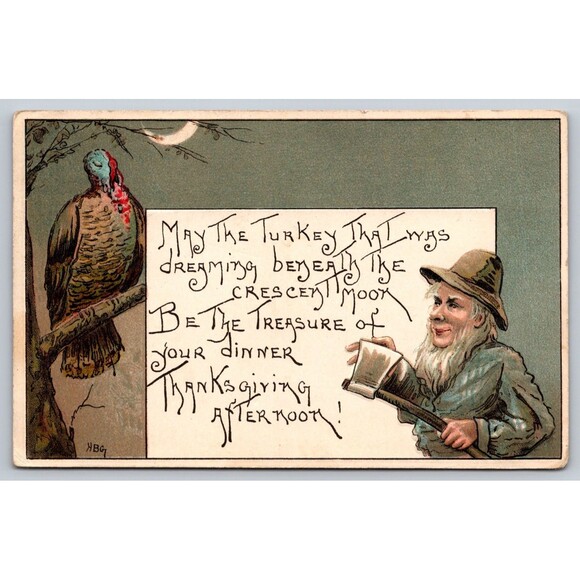 May The Turkey That was
dreaming beneath the
crescent moon
Be The Treasure of
your dinner
Thanksgiving
afternoon!
HBG